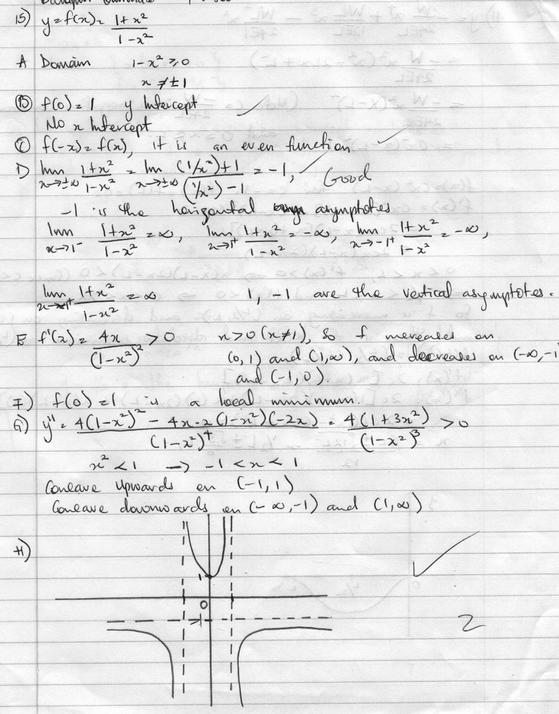 15) y = f(x) = (1+x²)/(1-x²)
A Domain 1-x² ≥ 0
x ≠ ±1
(B) f(0) = 1 y Intercept
No x Intercept
(C) f(-x) = f(x), it is an even function
D) lim x→±∞ (1+x²)/(1-x²) = lim x→±∞ ((1/x²)+1)/((1/x²)-1) = -1, Good
-1 is the horizontal asymptotes
lim x→1⁻ (1+x²)/(1-x²) = ∞, lim x→1⁺ (1+x²)/(1-x²) = -∞, lim x→-1⁺ (1+x²)/(1-x²) = -∞,
lim (1+x²)/(1-x²) = ∞ 1, -1 are the vertical asymptotes.
E f'(x) = 4x/(1-x²)² > 0 x>0 (x≠1), so f increases on
(0,1) and (1,∞), and decreases on (-∞,-1
and (-1,0).
F) f(0)=1 is a local minimum.
G) y'' = (4(1-x²)² - 4x·2(1-x²)(-2x))/(1-x²)⁴ = 4(1+3x²)/(1-x²)³ > 0
x² < 1 → -1 < x < 1
Concave upwards on (-1,1)
Concave downwards on (-∞,-1) and (1,∞)
H)
0
2